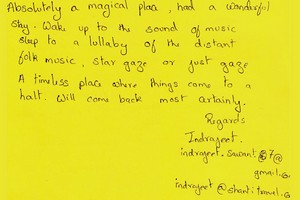 Absolutely a magical place, had a wonderful
stay. Wake up to the sound of music
sleep to a lullaby of the distant
folk music, star gaze or just gaze
A timeless place where things come to a
halt. Will come back most certainly.
Regards
Indrajeet.
indrajeet.sawant@67@
gmail.co
indrajeet@shantitravel.co